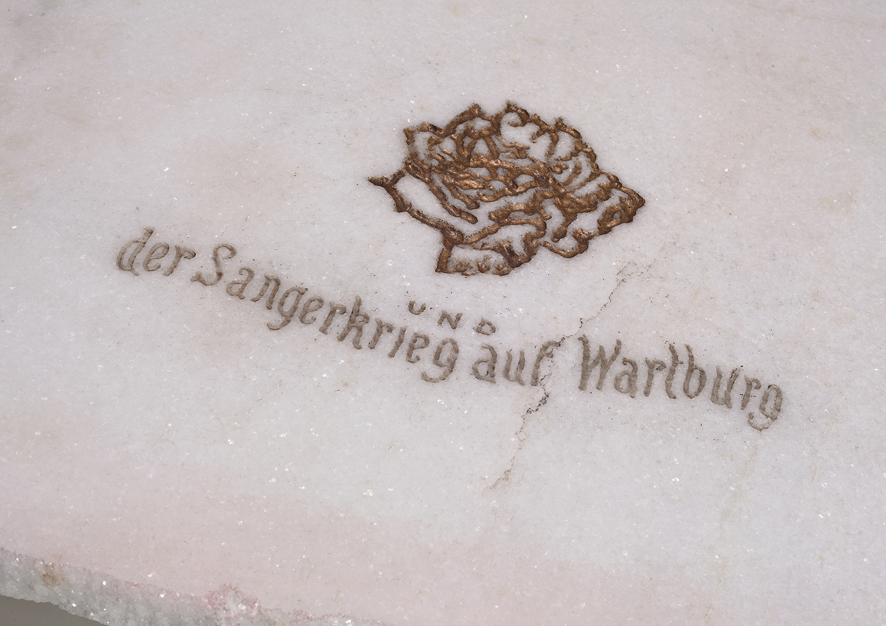 UND
der Sangerkrieg auf Wartburg